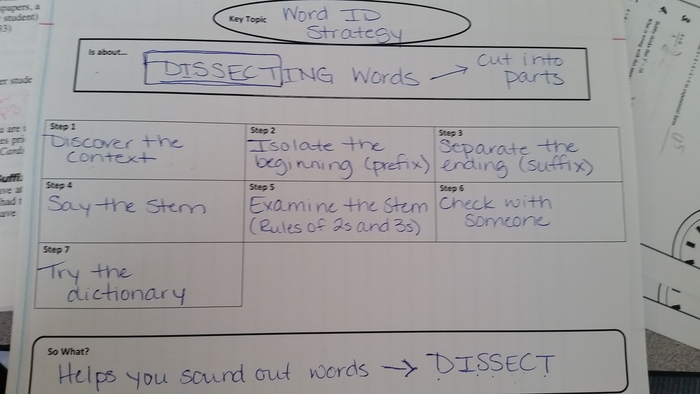 Key Topic Word ID
Strategy
Is about...
DISSECTING Words → cut into
parts
Step 1
Discover the
context
Step 2
Isolate the
beginning (prefix)
Step 3
Separate the
ending (suffix)
Step 4
Say the Stem
Step 5
Examine the Stem
(Rules of 2s and 3s)
Step 6
Check with
Someone
Step 7
Try the
dictionary
So What?
Helps you sound out words → DISSECT